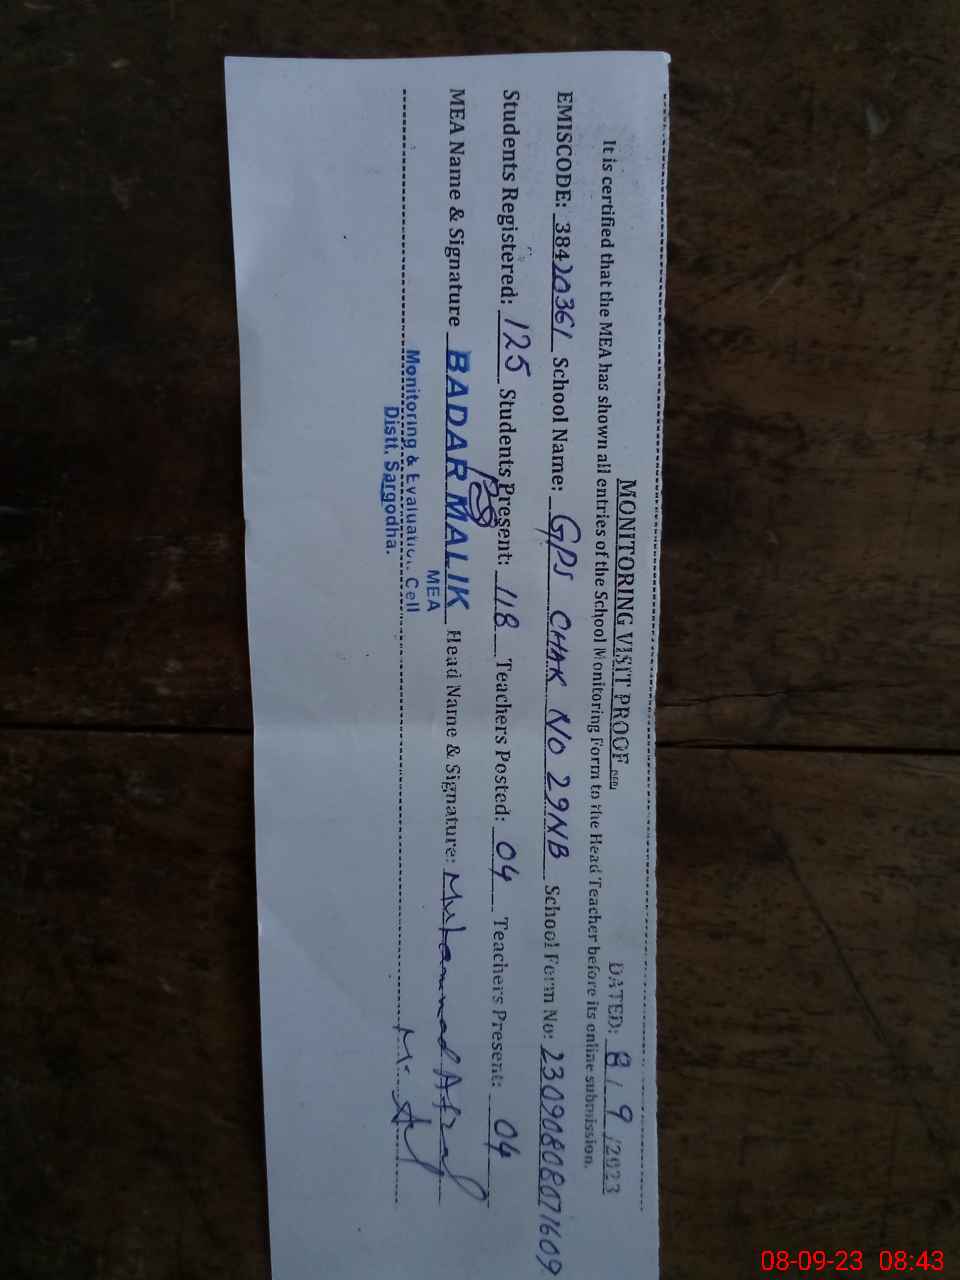 MONITORING VISIT PROOF DATED: 8/9/2023
It is certified that the MEA has shown all entries of the School Monitoring Form to the Head Teacher before its online submission.
EMISCODE: 38420361 School Name: GPS CHAK NO 29NB School Form No: 23090808071609
Students Registered: 125 Students Present: 118 Teachers Posted: 04 Teachers Present: 04
MEA Name & Signature BADAR MALIK Head Name & Signature: Muhammad Afzal
MEA
Monitoring & Evaluation Cell
Distt. Sargodha.
08-09-23 08:43